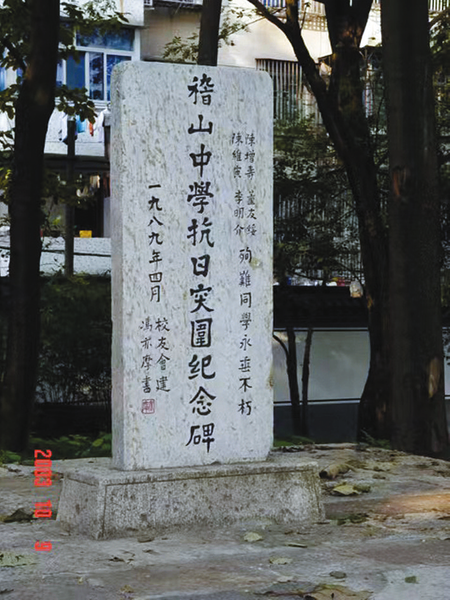 陳增壽 董友綏
陳維寅 李明介
殉難同學永垂不朽
稽山中學抗日突圍紀念碑
一九八九年四月
校友會建
馮亦摩書
2003 10